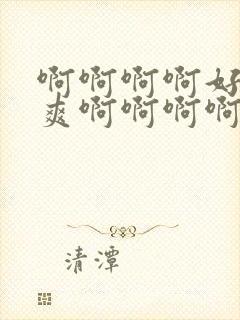 啊啊啊啊好
爽啊啊啊啊
清潭